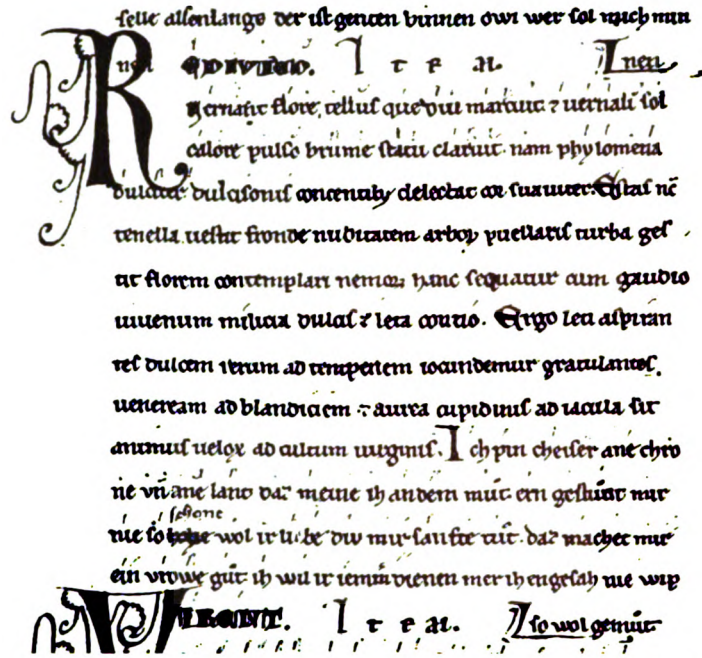 selle alsenlange der ist geriten hinnen owi wer sol mich min
nen REDIVIVO. I T E M. Inen
Uernant flore tellus que diu marcuit ⁊ uernali sol
calore pulso brume statu claruit. nam phylomena
dulciter dulcisonis concentibꝫ delectat cor suauiter. Estas nc̄
tenella uestit fronde nuditatem arboꝝ puellaris turba ges
tit florem contemplari nemoꝝ hanc sequatur cum gaudio
iuuenum milicia dulcis ⁊ leta contio. Ergo leti aspiran
tes dulcem uerum ad temperiem iocundemur gratulantes.
ueneream ad blandiciem ⁊ aurea cupidinis ad iacula sit
animus uelox ad cultum uirginis. Ich pin cheiser ane chro
ne vn̄ ane lant daz meine ih an dem mut ern gestunt mir
nie so schone wol ir liebe div mir sanfte tut. daz machet mir
ein vrowe gut ih wil ir iemm̄ dienen mer ih engesah nie wip
I T E M. so wol gemut